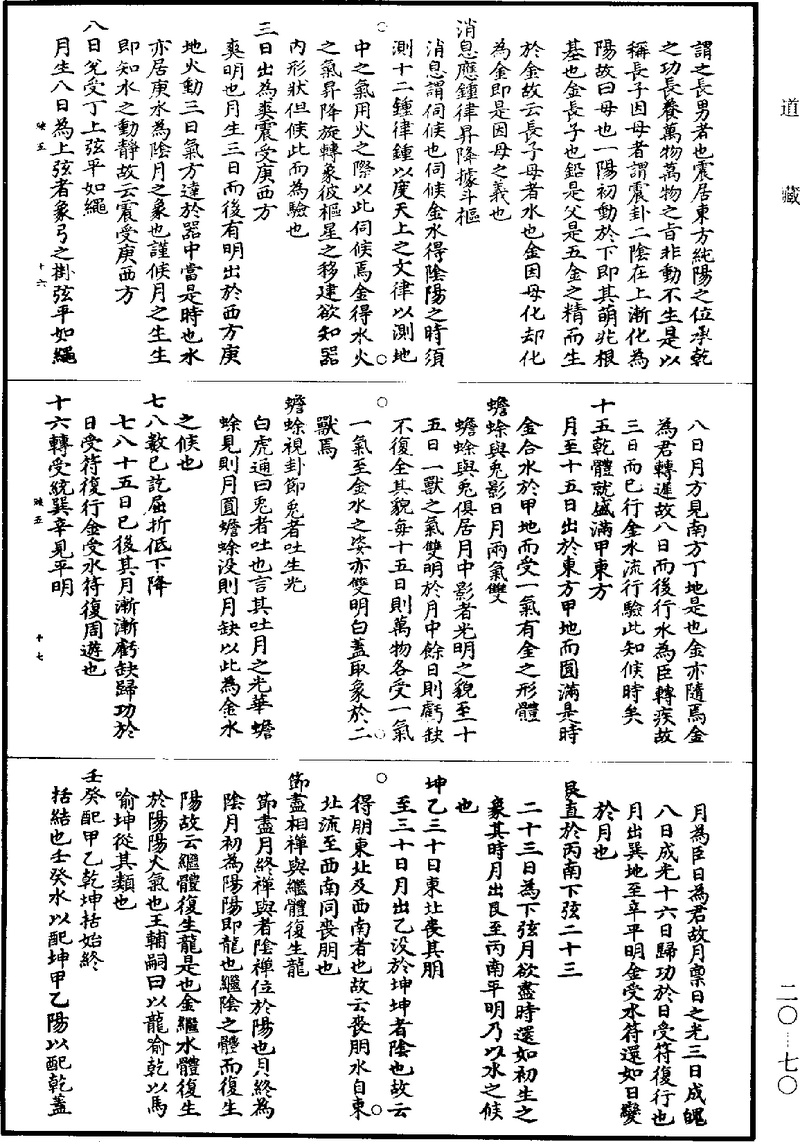 道藏
謂之長男者也震居東方純陽之位承乾
之功長養萬物萬物之首非動不生是以
稱長子因母者謂震卦二陰在上漸化為
陽故曰母也一陽初動於下即其萌兆根
基也金長子也鉛是父是五金之精而生
於金故云長子母者水也金因母化却化
為金即是因母之義也
消息應鍾律昇降據斗樞
消息謂伺候也伺候金水得陰陽之時須
測十二鍾律鍾以度天上之文律以測地
中之氣用火之際以此伺候焉金得水火
之氣昇降旋轉象彼樞星之移建欲知器
內形狀但候此而為驗也
三日出為爽震受庚西方
爽明也月生三日而後有明出於西方庚
地火動三日氣方達於器中當是時也水
亦居庚水為陰月之象也謹候月之生生
即知水之動靜故云震受庚西方
八日兊受丁上弦平如繩
月生八日為上弦者象弓之掛弦平如繩
映五
十六
八日月方見南方丁地是也金亦隨焉金
為君轉遲故八日而後行水為臣轉疾故
三日而已行金水流行驗此知候時矣
十五乾體就盛滿甲東方
月至十五日出於東方甲地而圓滿是時
金合水於甲地而受一氣有金之形體
蟾蜍與兎影日月兩氣雙
蟾蜍與兎俱居月中影者光明之貌至十
五日一獸之氣雙明於月中餘日則虧缺
不復全其貌每十五日則萬物各受一氣
一氣至金水之姿亦雙明白蓋取象於二
獸焉
蟾蜍視卦節兎者吐生光
白虎通曰兎者吐也言其吐月之光華蟾
蜍見則月圓蟾蜍没則月缺以此為金水
之候也
七八數已訖屈折低下降
七八十五日已後其月漸漸虧缺歸功於
日受符復行金受水符復周遊也
十六轉受統巽辛見平明
映五
十七
月為臣日為君故月禀日之光三日成魄
八日成光十六日歸功於日受符復行也
月出巽地至辛平明金受水符還如日變
於月也
艮直於丙南下弦二十三
二十三日為下弦月欲盡時還如初生之
象其時月出艮至丙南平明乃以水之候
也
坤乙三十日東北喪其朋
至三十日月出乙没於坤坤者陰也故云
得朋東北及西南者也故云喪朋水自東
北流至西南同喪朋也
節盡相禪與繼體復生龍
節盡月終禪與者陰禪位於陽也月終為
陰月初為陽陽即龍也繼陰之體而復生
陽故云繼體復生龍是也金繼水體復生
於陽陽火氣也王輔嗣曰以龍喻乾以馬
喻坤從其類也
壬癸配甲乙乾坤括始終
括結也壬癸水以配坤甲乙陽以配乾蓋
二〇—七〇